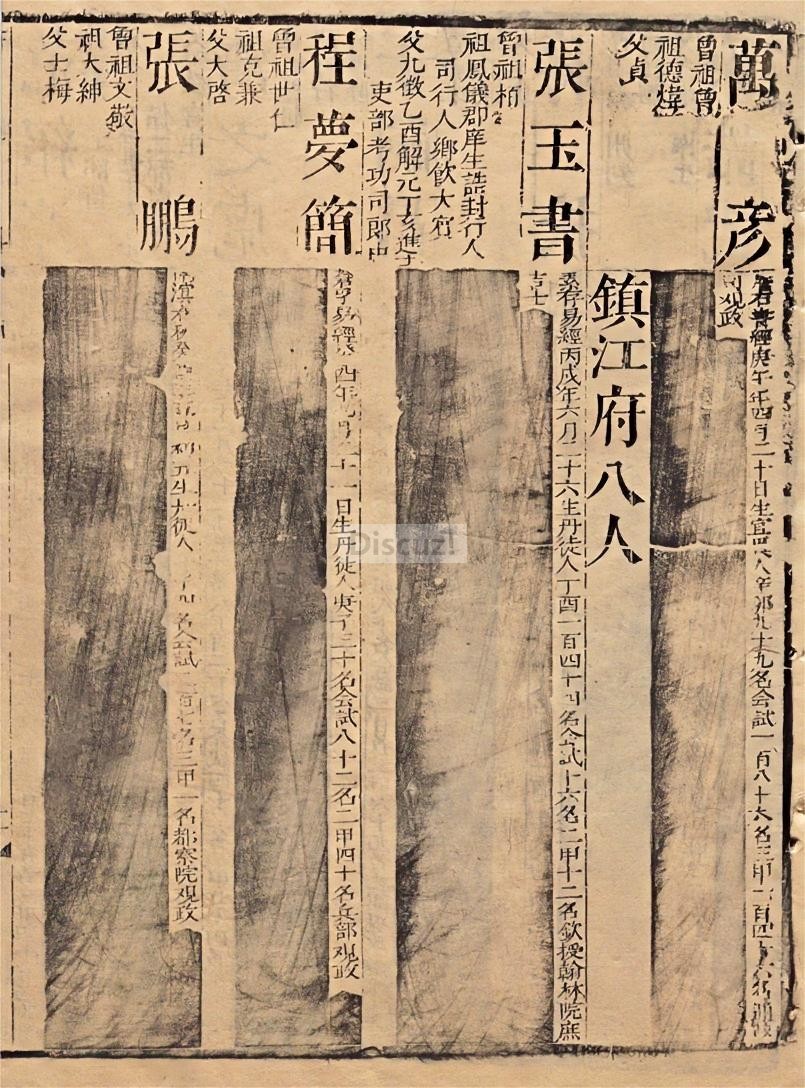 萬彦
曾祖曾
祖德煒
父貞
書經庚午年四月二十日生宜興人辛卯九十九名會試一百八十六名三甲一百四十六名通政
司观政
鎮江府八人
張玉書
曾祖栢
祖鳳儀郡庠生誥封行人
司行人鄉飲大賓
父九徵乙酉解元丁亥進士
吏部考功司郎中
素存易經丙戌年六月二十六生丹徒人丁酉一百四十四名会試十六名二甲十二名欽授翰林院庶
吉士
程夢簡
曾祖世仁
祖克兼
父大啓
易經 酉年 月二十一日生丹徒人 子三十名会試八十二名二甲四十名兵部观政
張鵬
曾祖文敬
祖大紳
父士梅
生丹徒人 名会試 三百七名三甲一名都察院观政
Discuz!